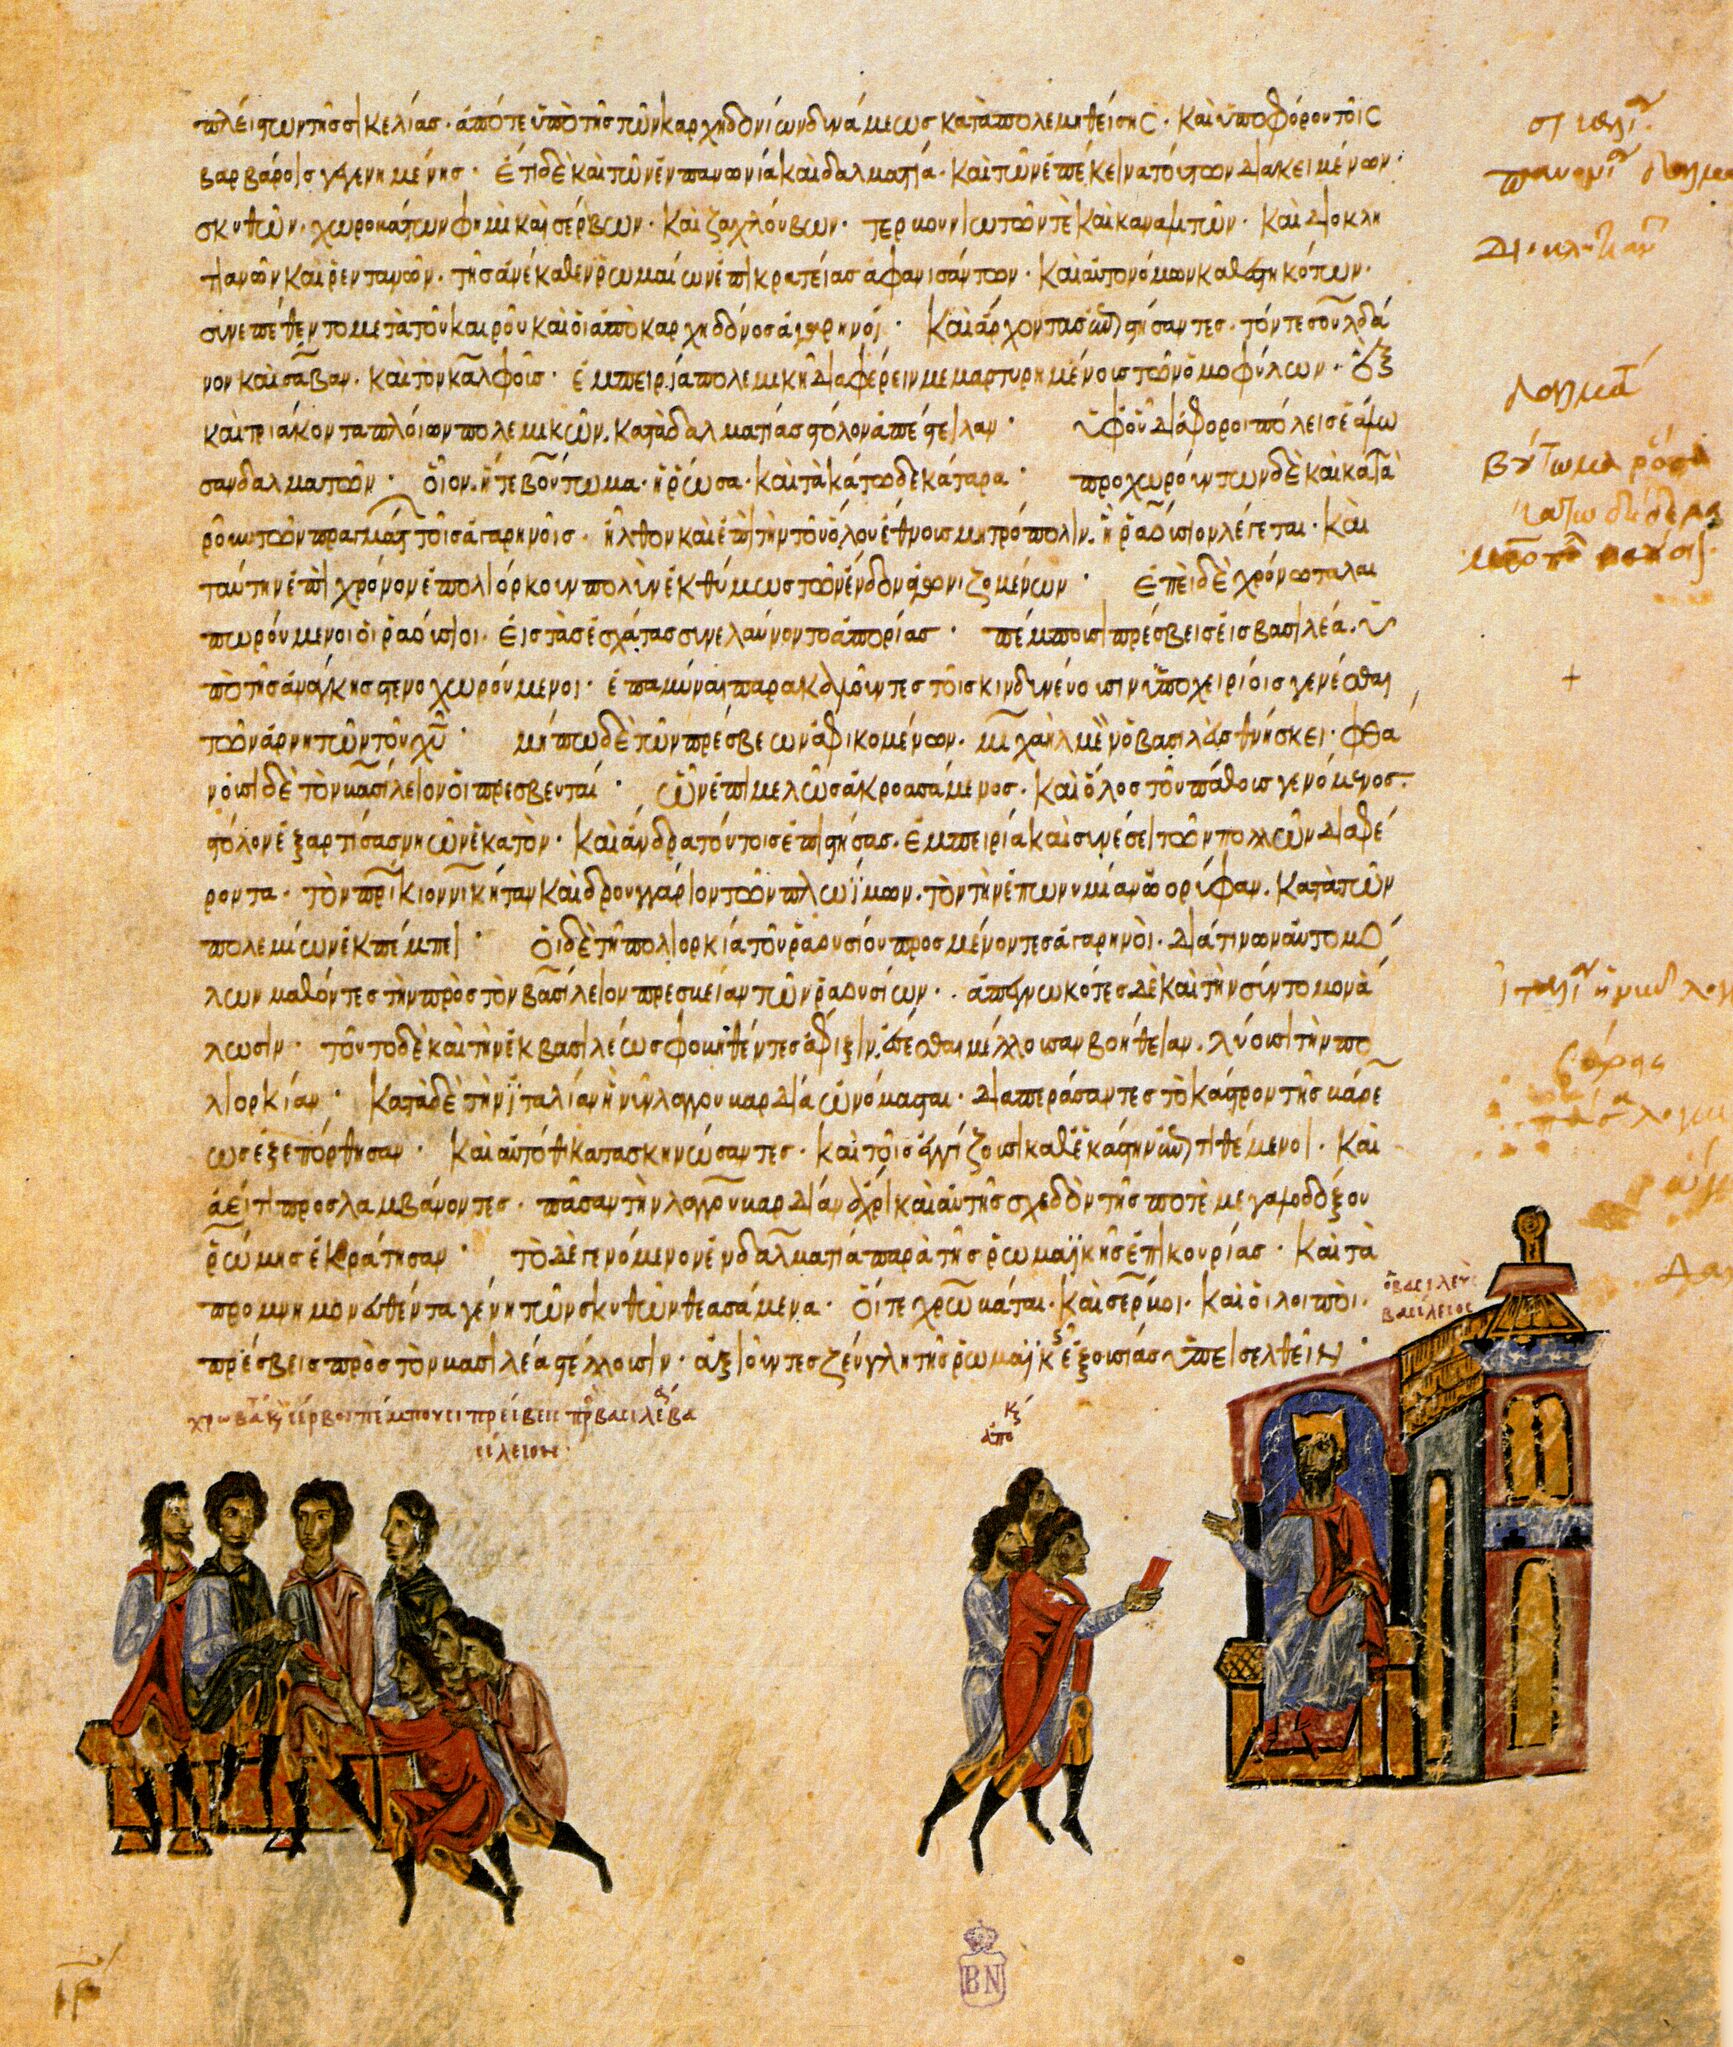 πλείστων τῆς σικελίας· ἀπό τε ὑπὸ τῆς τῶν καρχηδονίων δυνάμεως καταπολεμηθείσης· καὶ ὑποφόρου τοῖς
βαρβάροις γεγενημένης· ἔτι δὲ καὶ τῶν ἐν πανωνία καὶ δαλματία· καὶ τῶν ἐπέκεινα τούτων διακειμένων·
σκυθῶν· χωροβάτων φημὶ καὶ σέρβων· καὶ ζαχλούβων· τερβουνιωτῶν τὲ καὶ καναλιτῶν· καὶ διοκλη
τιανῶν καὶ ῥεντανῶν· τῆς ἀνέκαθεν ῥωμαίων ἐπικρατείας ἀφανισάντων· καὶ αὐτονόμων καθεστηκότων·
συνεπέθεντο μετὰ τοῦ καιροῦ καὶ οἱ ἀπὸ καρχηδόνος ἀγαρηνοί· καὶ ἄρχοντας στήσαντες· τόν τε σουλδά
νον καὶ σάβαν· καὶ τὸν καλφοῦς· ἐμπειρία πολεμικῆ διαφέρειν μεμαρτυρημένοις τῶν ὁμοφύλων· ἓξ
καὶ τριάκοντα πλοίων πολεμικῶν· κατὰ δαλματίας στόλον ἀπέστειλαν· ὑφ' οὗ διάφοροι πόλεις ἑάλω
σαν δαλματῶν· οἷον ἥ τε βούτωμα· ἡ ῥῶσα· καὶ τὰ κάτω δεκάταρα· προχωρούντων δὲ καὶ κατὰ
ῥοῦν τῶν πραγμάτων τοῖς ἀγαρηνοῖς· ἦλθον καὶ ἐπὶ τὴν τοῦ ὅλου ἔθνους μητρόπολιν· ἣ ῥαούσιον λέγεται· καὶ
ταύτην ἐπὶ χρόνον ἐπολιόρκουν πολὺν ἐκθύμως τῶν ἔνδον ἀγωνιζομένων· ἐπεὶ δὲ χρόνω ταλαι
πωρούμενοι οἱ ῥαούσιοι· εἰς τὰς ἐσχάτας συνελαύνοντο ἀπορίας· πέμπουσι πρέσβεις εἰς βασιλέα· ὑ
πὸ τῆς ἀνάγκης στενοχωρούμενοι· ἐπαμῦναι παρακαλοῦντες τοῖς κινδυνεύουσιν ὑποχειρίοις γενέσθαι
τῶν ἀρνητῶν τοῦ χῦ· μήπω δὲ τῶν πρέσβεων ἀφικομένων· μιχαὴλ μὲν ὁ βασιλεὺς θνήσκει· φθά
νουσι δὲ τὸν βασίλειον οἱ πρεσβευταί· ὧν ἐπιμελῶς ἀκροασάμενος· καὶ ὅλος τοῦ πάθους γενόμενος·
στόλον ἐξαρτίσας νηῶν ἑκατὸν· καὶ ἄνδρα τούτοις ἐπιστήσας· ἐμπειρία καὶ συνέσει τῶν πολλῶν διαφέ
ροντα· τὸν πρικιον νικήταν καὶ δρουγγάριον τῶν πλωΐμων· τὸν τὴν ἐπωνυμίαν ὠορύφαν· κατὰ τῶν
πολεμίων ἐκπέμπει· οἱ δὲ τῆ πολιορκία τοῦ ῥαουσίου προσμένοντες ἀγαρηνοὶ· διά τινων αὐτομό
λων μαθόντες τὴν πρὸς τὸν βασίλειον πρεσβείαν τῶν ῥαουσίων· ἀπεγνωκότες δὲ καὶ τὴν σύντομον ἅ
λωσιν· τοῦτο δὲ καὶ τὴν ἐκ βασιλέως φοβηθέντες ἄφιξιν ἔσεσθαι μέλλουσαν βοήθειαν· λύουσι τὴν πο
λιορκίαν· κατὰ δὲ τὴν ἰταλίαν ἣ νῦν λογγουβαρδία ὠνόμασται· διαπεράσαντες τὸ κάστρον τῆς βάρε
ως ἐξεπόρθησαν· καὶ αὐτόθι κατασκηνώσαντες· καὶ τοῖς ἐγγίζουσι καθ' ἑκάστην ἐπιτιθέμενοι· καὶ
ἀεί τι προσλαμβάνοντες· πᾶσαν τὴν λογγουβαρδίαν ἄχρι καὶ αὐτῆς σχεδὸν τῆς ποτὲ μεγαλοδόξου
ῥώμης ἐκράτησαν· τὸ δὲ γενόμενον ἐν δαλματία παρὰ τῆς ῥωμαϊκῆς ἐπικουρίας· καὶ τὰ
προμνημονευθέντα γένη τῶν σκυθῶν θεασάμενα· οἵ τε χρωβάται· καὶ σέρβοι· καὶ οἱ λοιποὶ·
πρέσβεις πρὸς τὸν βασιλέα στέλλουσιν· ἀξιοῦντες ζεύγλη τῆς ῥωμαϊκῆς ἐξουσίας ὑπεισελθεῖν·
ὁ βασιλεὺς
βασίλειος
χρωβάτ κ σέρβοι πέμπουσι πρέσβεις πρ βασιλέα βα
σίλειον·
ἀπο κ
σικελί
δαλματ
βούτωμα ῥῶσα
κάτω δεκάταρα
+
ιβ
BN